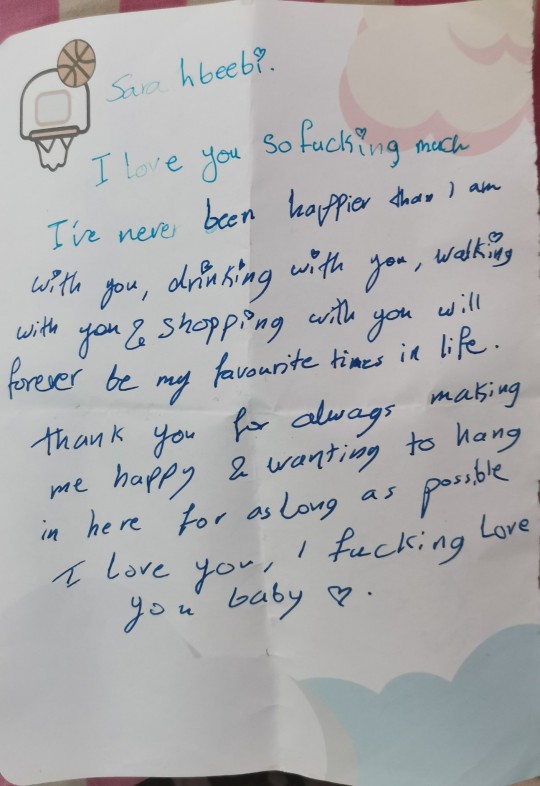 Sara hbeebi.
I love you so fucking much
I've never been happier than I am
with you, drinking with you, walking
with you & shopping with you will
forever be my favourite times in life.
thank you for always making
me happy & wanting to hang
in here for as long as possible
I love you, I fucking love
you baby ♡.